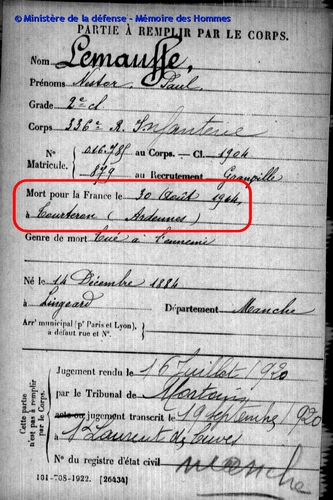 © Ministère de la défense - Mémoire des Hommes
PARTIE À REMPLIR PAR LE CORPS.
Nom Lemauffe,
Prénoms Nestor, Paul
Grade 2e cl
Corps 336e R. Infanterie
N° 016.785 au Corps. — Cl. 1904
Matricule. 879 au Recrutement Granville
Mort pour la France le 30 Août 1914,
à (Ardennes)
Genre de mort Tué à l'ennemi
Né le 14 Décembre 1884
à Lingeard Département Manche
Arrt municipal (pr Paris et Lyon),
à défaut rue et N°.
Cette partie n'est pas à remplir par le Corps.
Jugement rendu le 16 Juillet 1920
par le Tribunal de Mortain
acte ou jugement transcrit le 19 septembre 1920
à St Laurent de Cuves
N° du registre d'état civil Manche
101-708-1922. [26434]